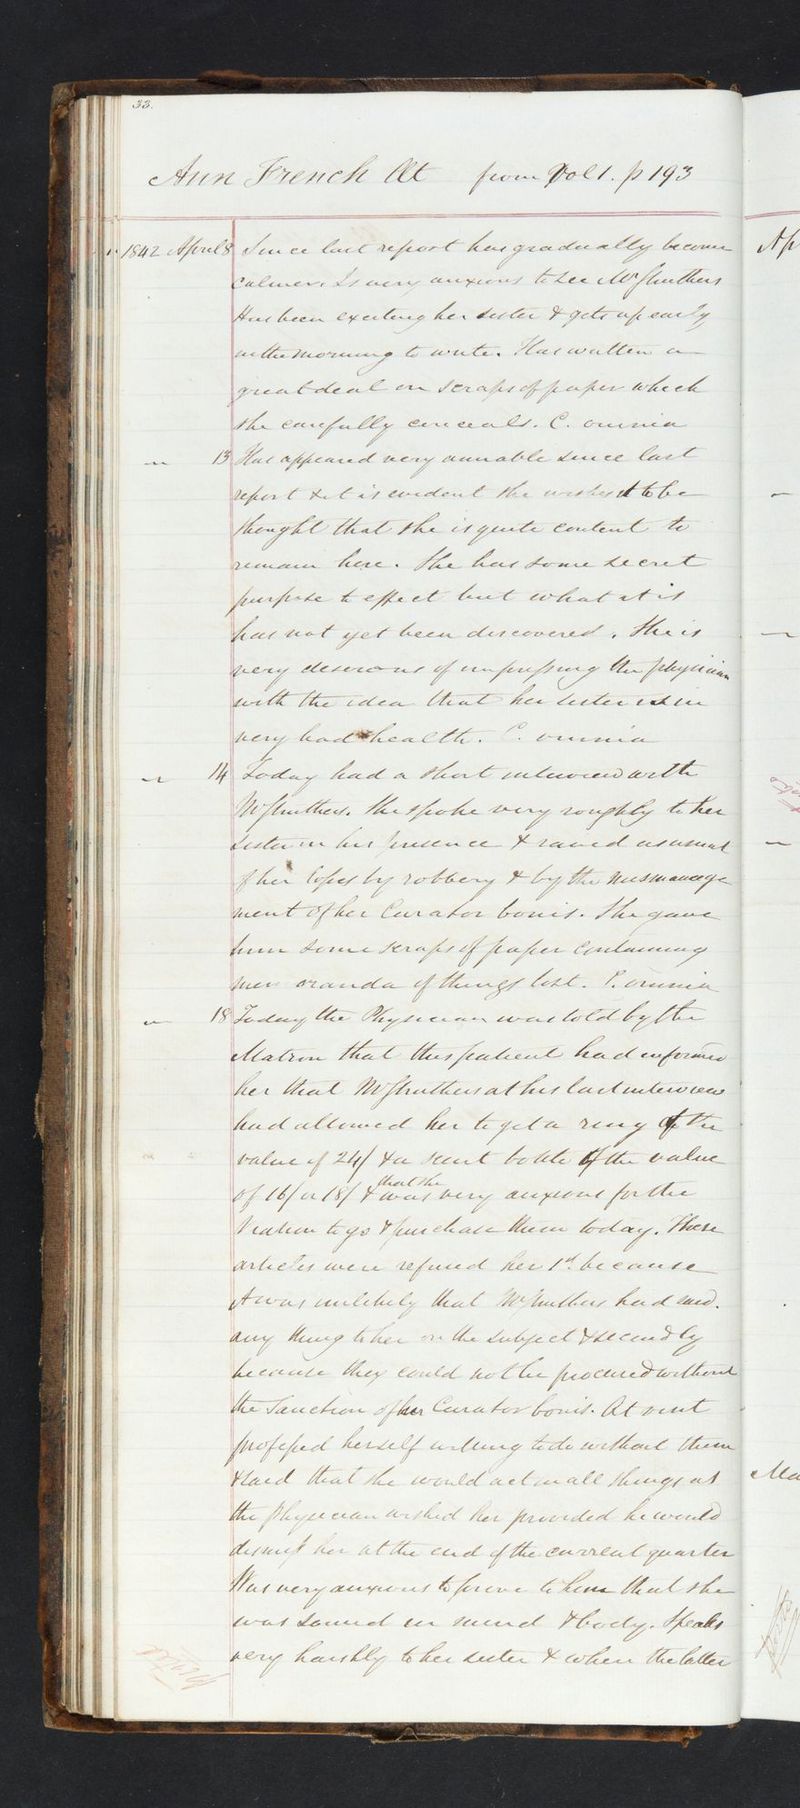 33.
Ann French Æt from Vol 1. p 193
1842 April 8 Since last report has gradually become
calmer. Is very anxious to see Mr Struthers
Has been exciting her sister & gets up early
in the morning to write. Has written a
great deal on scraps of paper which
she carefully conceals. C. omnia
" 13 Has appeared very amiable since last
report & it is evident she wishes it to be
thought that she is quite content to
remain here. She has some secret
purpose to effect but what it is
has not yet been discovered. She is
very desirous of impressing the physician
with the idea that her sister is in
very bad health. C. omnia
" 14 Today had a short interview with
Mr Struthers. She spoke very roughly to her
sister in his presence & raved as usual
of her losses by robbery & by the mismanage
ment of her Curator bonis. She gave
him some scraps of paper containing
memoranda of things lost. C. omnia
" 18 Today the Physician was told by the
Matron that this patient had informed
her that Mr Struthers at his last interview
had allowed her to get a ring of the
value of 24/ & a scent bottle of the value
of 16/ or 18/ & that she was very anxious for the
Matron to go & purchase them today. These
articles were refused her 1st because
it was unlikely that Mr Struthers had said
any thing to her on the subject & secondly
because they could not be procured without
the Sanction of her Curator bonis. At visit
professed herself willing to do without them
& said that she would act in all things as
the physician wished her provided he would
dismiss her at the end of the current quarter
Was very anxious to prove to him that she
was sound in mind & body. Speaks
very harshly to her sister & when the latter